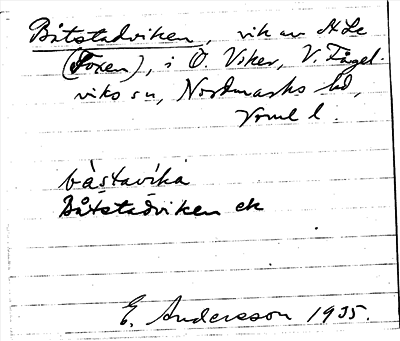 Båtstadviken, vik av St Le
(Foxen), i Ö. Viker, V. Fågel-
viks sn, Nordmarks hd,
Vrml l.
bàstavíka
Båtstadviken ek
E. Andersson 1935.